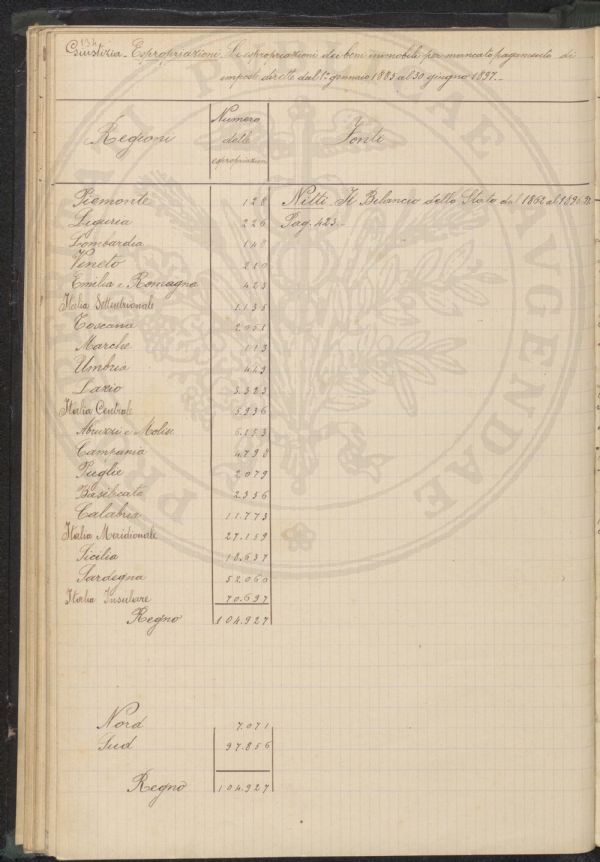 134
Giustizia - Espropriazioni. Le espropriazioni dei beni immobili per mancato pagamento di
imposte dirette dal 1° gennaio 1885 al 30 giugno 1897.-
Regioni Numero delle espropriazioni Fonti
Piemonte 128 Nitti. Il Bilancio dello Stato dal 1862 al 1896-97
Liguria 226 Pag. 423.-
Lombardia 148
Veneto 210
Emilia e Romagna 423
Italia Settentrionale 1.135
Toscana 2.051
Marche 113
Umbria 449
Lazio 3.323
Italia Centrale 5.936
Abruzzi e Molise 6.153
Campania 4.798
Puglie 2.079
Basilicata 2.356
Calabria 11.773
Italia Meridionale 27.159
Sicilia 18.637
Sardegna 52.060
Italia Insulare 70.697
Regno 104.927
Nord 7.071
Sud 97.856
Regno 104.927